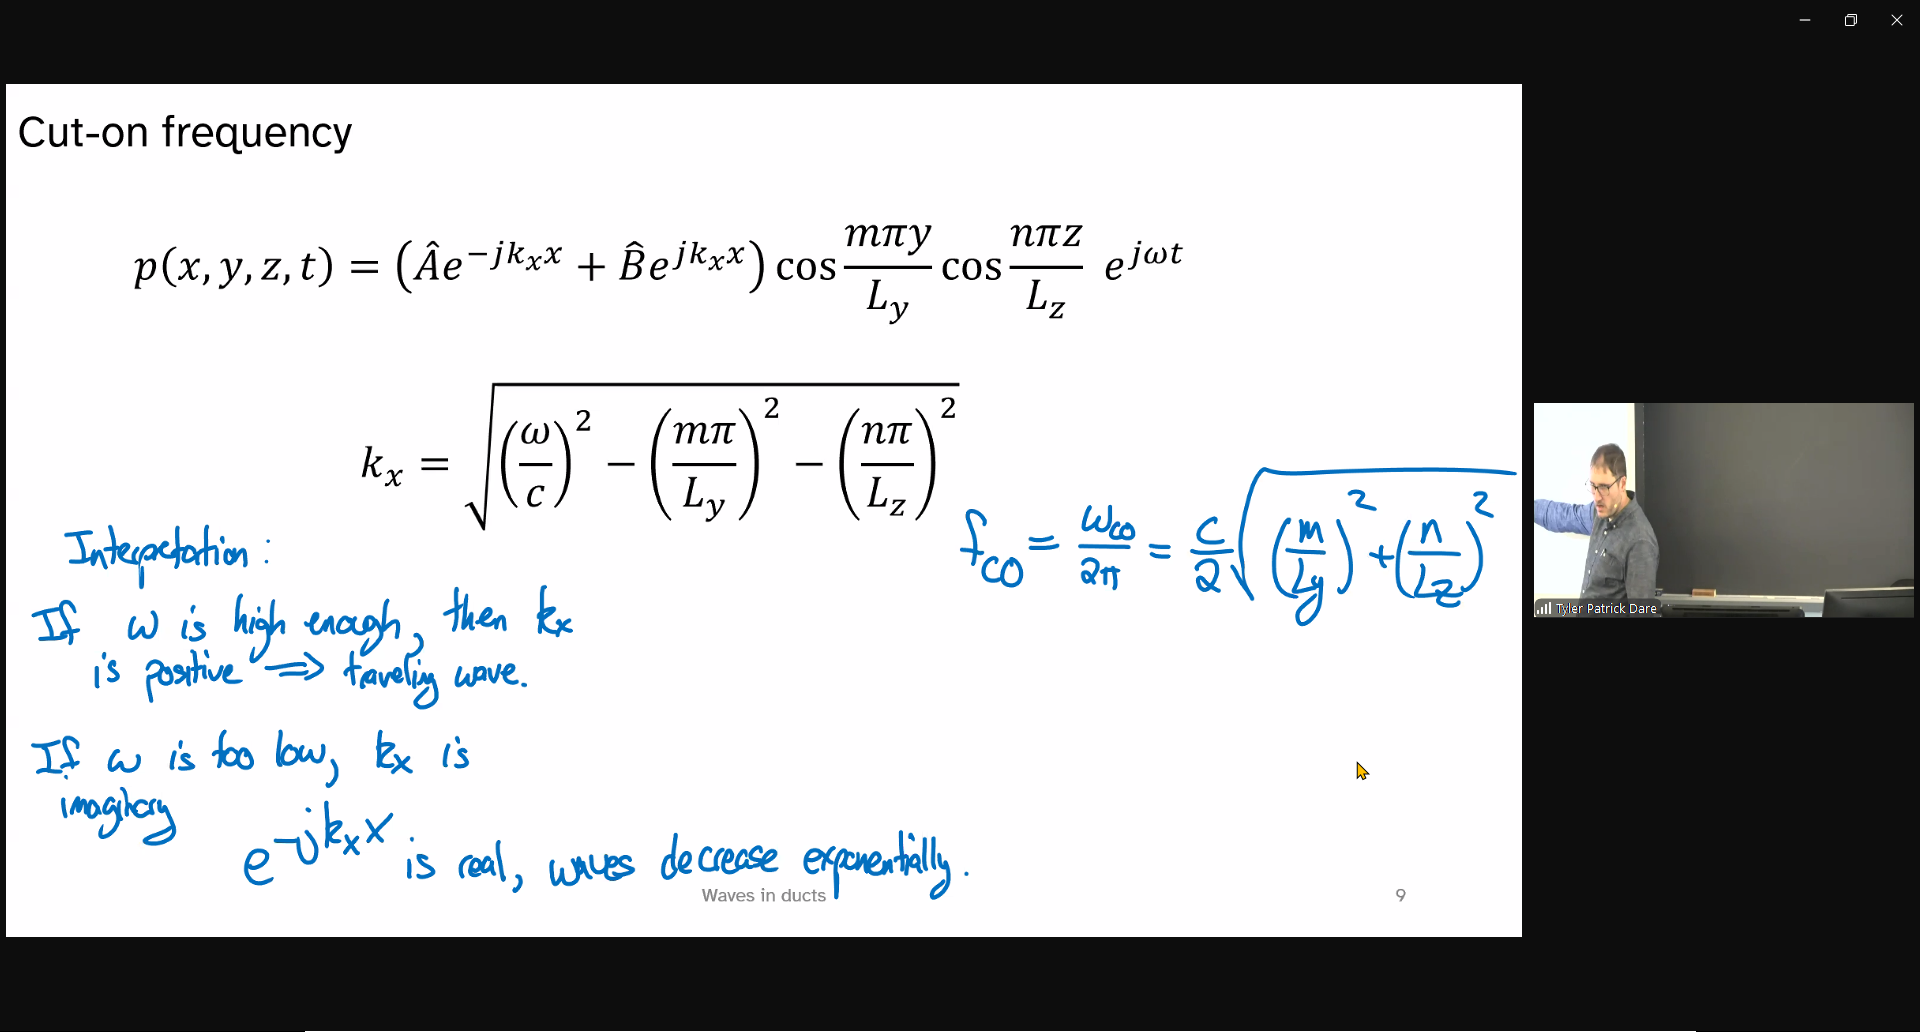 Cut-on frequency
p(x, y, z, t) = (Âe^{-jk_x x} + B̂e^{jk_x x}) cos \frac{mπy}{L_y} cos \frac{nπz}{L_z} e^{jωt}
k_x = \sqrt{(\frac{ω}{c})^2 - (\frac{mπ}{L_y})^2 - (\frac{nπ}{L_z})^2}
f_{co} = \frac{ω_{co}}{2π} = \frac{c}{2} \sqrt{(\frac{m}{L_y})^2 + (\frac{n}{L_z})^2}
Interpretation:
If ω is high enough, then k_x
is positive ⇒ traveling wave.
If ω is too low, k_x is
imaginary
e^{-jk_x x} is real, waves decrease exponentially.
Waves in ducts
9
Tyler Patrick Dare